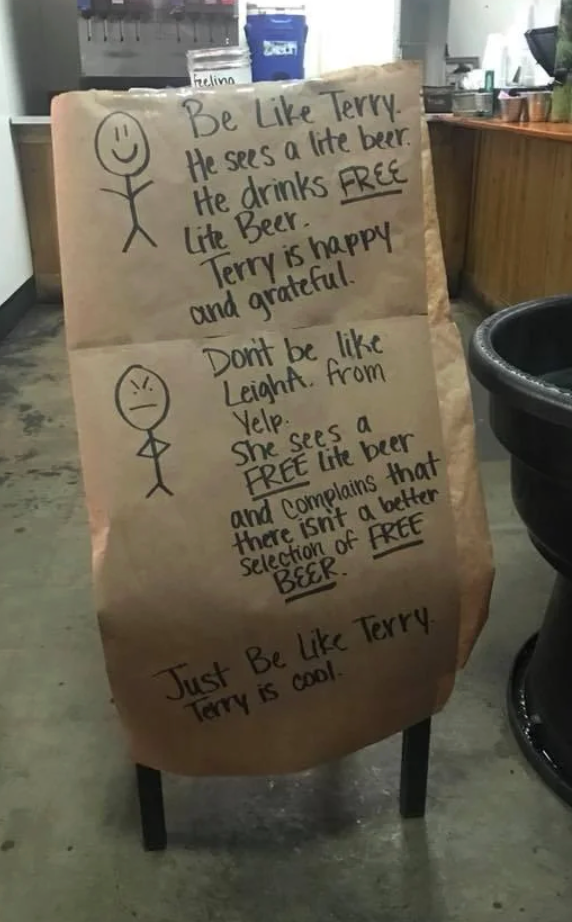 feeling
Be Like Terry.
He sees a lite beer.
He drinks FREE
Lite Beer.
Terry is happy
and grateful.
Don't be like
LeighA. from
Yelp.
She sees a
FREE Lite beer
and complains that
there isn't a better
selection of FREE
BEER.
Just Be Like Terry.
Terry is cool.